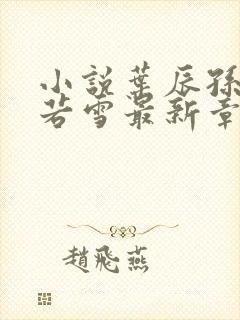 小說葉辰孫
若雪最新章
趙飛燕